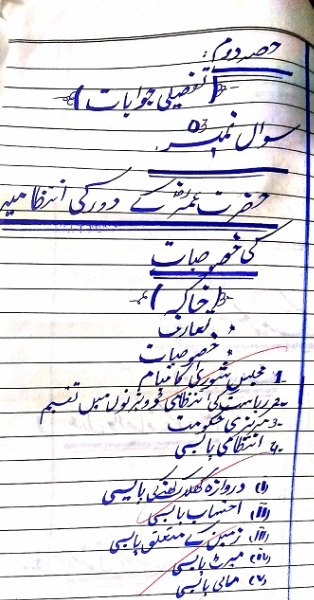 حصہ دوم:
(تفصیلی جوابات)
سوال نمبر 03
حضرت عمرؓ کے دور کی انتظامیہ
کی خصوصیات
(خاکہ)
* تعارف
* خصوصیات
1۔ مجلس شوریٰ کا قیام
2۔ ریاست کی انتظامی ڈویژنوں میں تقسیم
3۔ مرکزی حکومت
4۔ انتظامی پالیسی
(i) دروازہ کھلا رکھنے کی پالیسی
(ii) احتساب پالیسی
(iii) زمین کے متعلق پالیسی
(iv) میرٹ پالیسی
(v) مالی پالیسی